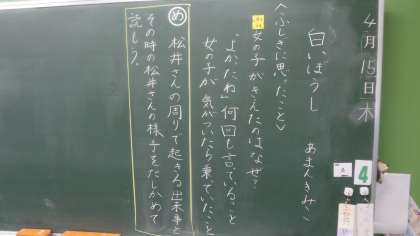 4月15日木
白いぼうし　あまんきみこ
〈ふしぎに思ったこと〉
女の子がきえたのはなぜ?
よかったね」何回も言っていること
女の子が気がついたら乗っていたこと
め 松井さんの周りで起きる出来事と
その時の松井さんの様子をたしかめて
読もう。
4